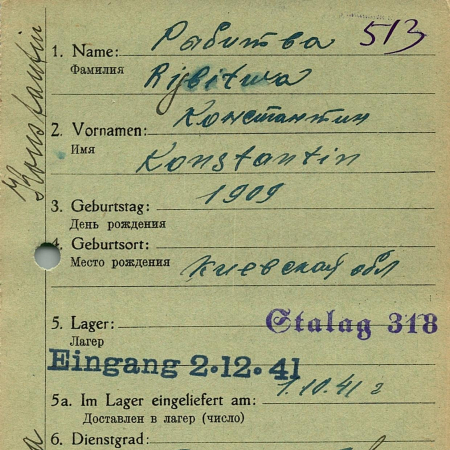 Konstantin
513
1. Name: Рабитва
Фамилия Rybitwa
2. Vornamen: Константин
Имя Konstantin
3. Geburtstag: 1909
День рождения
4. Geburtsort:
Место рождения Киевская обл
5. Lager: Stalag 318
Лагер
Eingang 2.12.41
5a. Im Lager eingeliefert am: 1.10.41 г
Доставлен в лагер (число)
6. Dienstgrad: